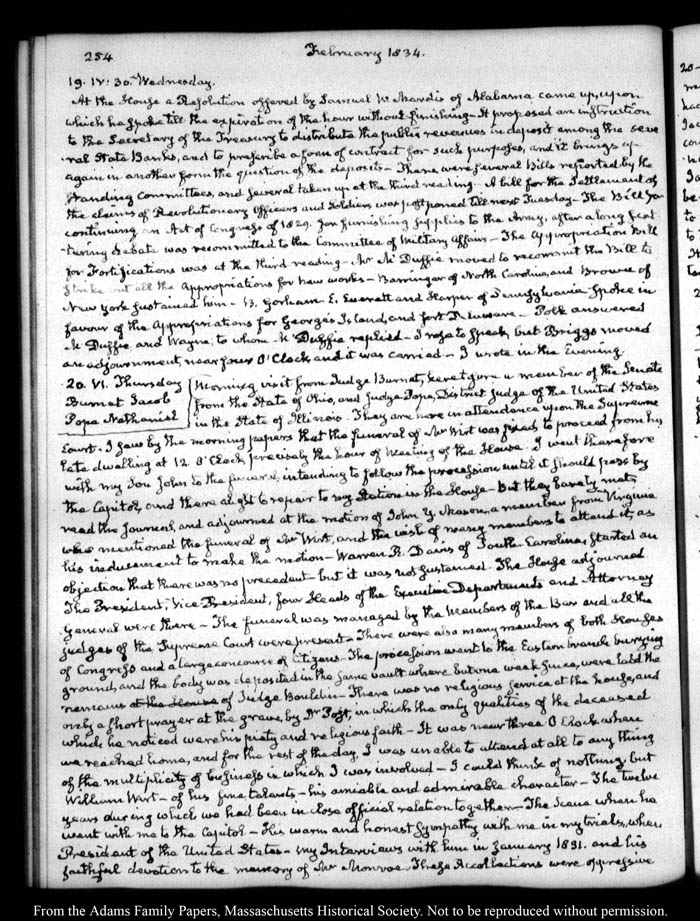 254
February 1834.
19. IV: 30. Wednesday.
At the House a Resolution offered by Samuel W. Mardis of Alabama came up, upon
which he spoke till the expiration of the hour without finishing – It proposed an instruction
to the Secretary of the Treasury to distribute the public revenues in deposit among the seve
ral State Banks, and to prescribe a form of contract for such purposes, and it brings up
again in another form the question of the deposits – There were several Bills reported by the
Standing Committees and several taken up at the third reading – A bill for the Settlement of
the claims of Revolutionary Officers and Soldiers was postponed till next Tuesday – The Bill for
continuing an Act of Congress of 1829. for furnishing supplies to the Army, after a long
debate was recommitted to the Committee of Military Affairs – The Appropriation Bill
for Fortifications was at the third reading – Mr McDuffie moved to recommit the Bill to
strike out all the appropriations for new works – Barringer of North Carolina, and Browne of
New York sustained him – B. Gorham E. Everett and Harper of Pennsylvania spoke in
favour of the Appropriations for George's Island, and fort Delaware – Polk answered
McDuffie and Wayne, to whom McDuffie replied – I rose to speak, but Briggs moved
an adjournment, near four O'Clock and it was carried – I wrote in the Evening.
20. VI. Thursday
Burnet Jacob
Pope Nathaniel
Morning visit from Judge Burnet, heretofore a member of the Senate
from the State of Ohio, and Judge Pope, District judge of the United States
in the State of Illinois – They are here in attendance upon the Supreme
Court. I saw by the morning papers that the funeral of Mr Wirt was fixed to proceed from his
late dwelling at 12. O'Clock precisely the hour of meeting of the House. I went therefore
with my Son John to the funeral, intending to follow the procession until it should pass by
the Capitol, and there alight to repair to my Station in the House – But they barely met,
read the Journal, and adjourned at the motion of John Y. Mason, a member from Virginia
who mentioned the funeral of Mr Wirt, and the wish of many members to attend it, as
his inducement to make the motion – Warren R. Davis of South Carolina, started an
objection that there was no precedent – but it was not sustained. The House adjourned
The President, Vice President, four Heads of the Executive Departments and Attorney
General were there – The funeral was managed by the Members of the Bar and all the
judges of the Supreme Court were present – There were also many members of both Houses
of Congress and a large concourse of Citizens – The procession went to the Eastern branch burying
ground, and the body was deposited in the same vault where but one week since, were laid the
remains at the House of Judge Bouldin – There was no religious service at the house, and
only a short prayer at the grave, by Dr Post, in which the only qualities of the deceased
which he noticed were his piety and religious faith – It was near three O'Clock when
we reached home, and for the rest of the day, I was unable to attend at all to any thing
of the multiplicity of business in which I was involved – I could think of nothing but
William Wirt – of his fine talents – his amiable and admirable character – The twelve
years during which we had been in close official relation together – The Scene when he
went with me to the Capitol – His warm and honest sympathy with me in my trials, when
President of the United States – my Interviews with him in January 1831. and his
faithful devotion to the memory of Mr Monroe. These recollections were oppressive
From the Adams Family Papers, Massachusetts Historical Society. Not to be reproduced without permission.